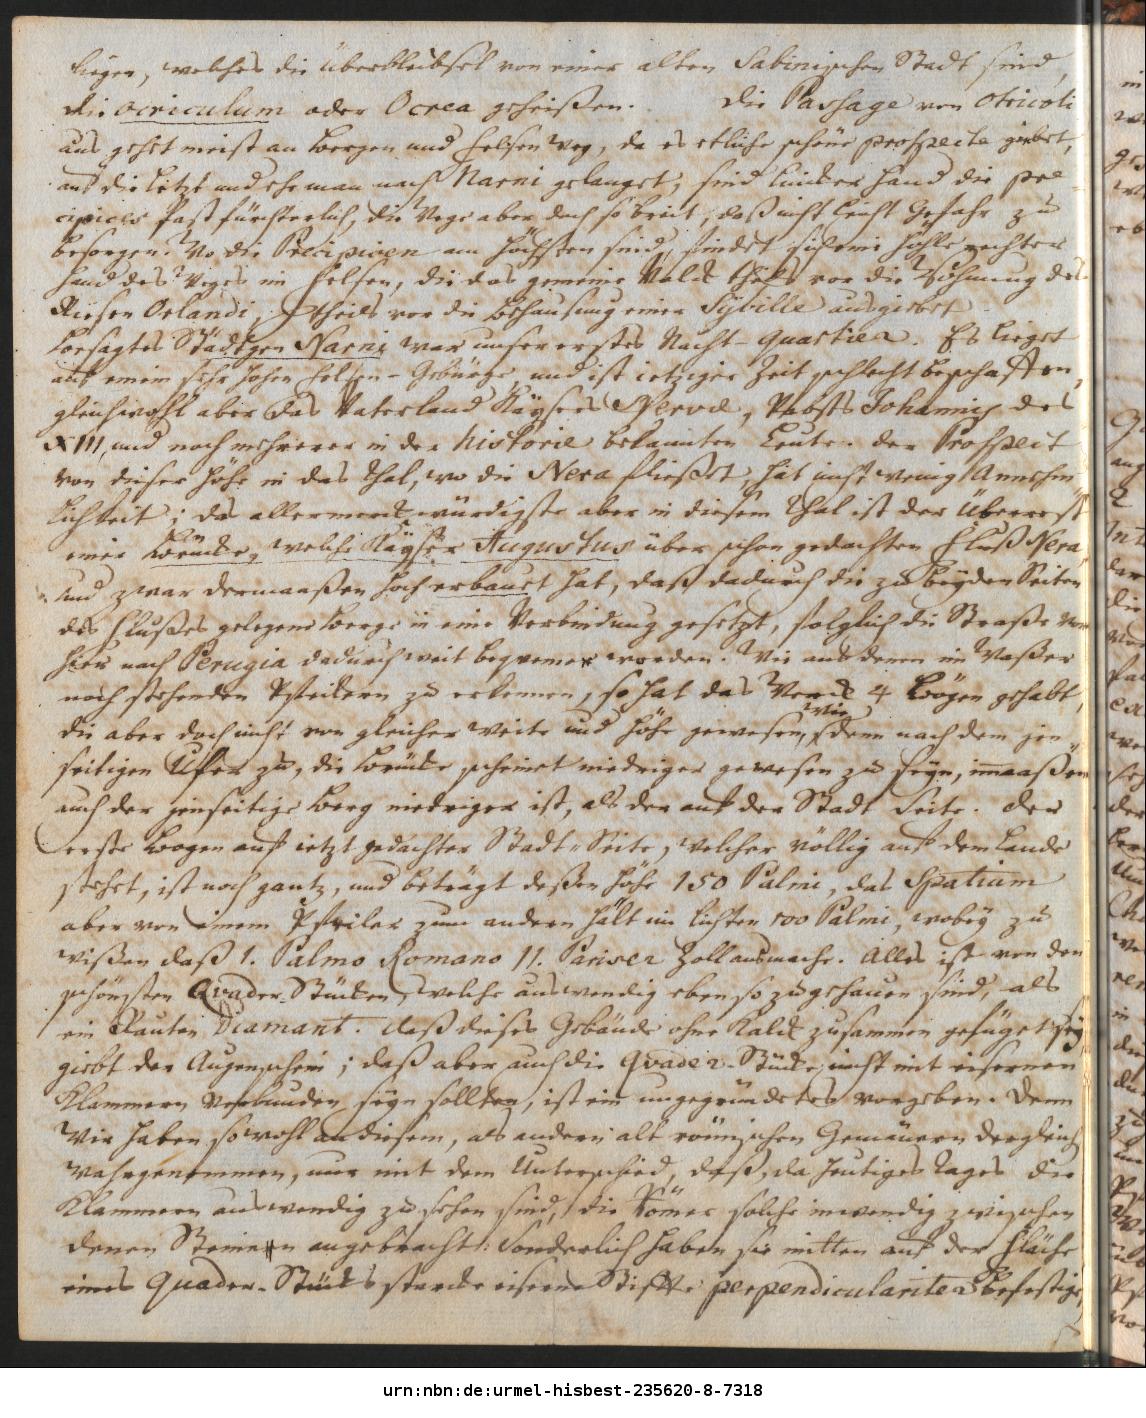 liegen, welches die Überbleibsel von einer alten Sabinischen Stadt sind,
die ocriculum oder Ocrea geheißen. Die Passage von Otricoli
aus gehet meist an Bergen und Felsen weg, da es etliche schöne prospecte giebet,
auf die Letzt und ehe man nach Narni gelanget, sind lincker Hand die pre-
cipices fast fürchterlich, die Wege aber doch so breit, daß nicht leicht Gefahr zu
besorgen. Wo die Precipicen am höchsten sind, findet sich eine Höhle rechter
Hand des Weges im Felsen, die das gemeine Volck theils vor die Wohnung des
Riesen Orlandi, theils vor die Behausung einer Sybille ausgiebet
Besagtes Städtgen Narni war unser erstes Nacht-quartier. Es lieget
auf einem sehr hohen Felsen-Gebürge, und ist ietziger Zeit schlecht beschaffen,
gleichwohl aber das Vaterland Käysers Nervæ, Pabsts Johannis des
XIII, und noch mehrerer in der historie bekannten Leute. Der Prospect
von dieser Höhe in das Thal, wo die Nera fließet, hat nicht wenig Annehm-
lichkeit; das allermerckwürdigste aber in diesem Thal ist der Überrest
einer Brücke, welche Käyser Augustus über schon gedachten Fluß Nera,
und zwar dermaaßen hoch erbauet hat, daß dadurch die zu beyden Seiten
des Flußes gelegene Berge in eine Verbindung gesetzt, folglich die Straße von
hier nach Perugia dadurch weit beqvemer worden. Wie aus denen im Waßer
noch stehenden Pfeilern zu erkennen, so hat das Werck 4 Bögen gehabt,
die aber doch nicht von gleicher Weite und Höhe gewesen, wie denn nach dem jen-
seitigen Ufer zu, die Brücke scheinet niedriger gewesen zu seyn, immaaßen
auch der jenseitige Berg niedriger ist, als der auf der Stadt Seite. Der
erste Bogen auf ietzt gedachter Stadt-Seite, welcher völlig auf dem Lande
stehet, ist noch gantz, und beträgt deßen Höhe 150 Palmi, das Spatium
aber von einem Pfeiler zum andern hält im Lichten 100 Palmi, wobey zu
wißen daß 1. Palmo Romano 11. Pariser Zoll ausmache. Alles ist von den
schönsten Qvader-Stücken, welche auswendig eben so zugehauen sind, als
ein Rauten Diamant. Daß dieses Gebäude ohne Kalck zusammen gefüget sey
giebt der Augenschein; daß aber auch die Qvader-Stücke nicht mit eisernen
Klammern verbunden seyn sollten, ist ein ungegründetes vorgeben. Denn
Wir haben sowohl an diesem, als andern alt römischen Gemäuern dergleich
wahrgenommen, nur mit dem Unterschied, daß, da heutiges Tages die
Klammern auswendig zu sehen sind, die Römer solche inwendig zwischen
denen Steinen angebracht: Sonderlich haben sie mitten auf der Fläche
eines Quader-Stücks starcke eiserne Stiffte perpendiculariter befestiget,
urn:nbn:de:urmel-hisbest-235620-8-7318